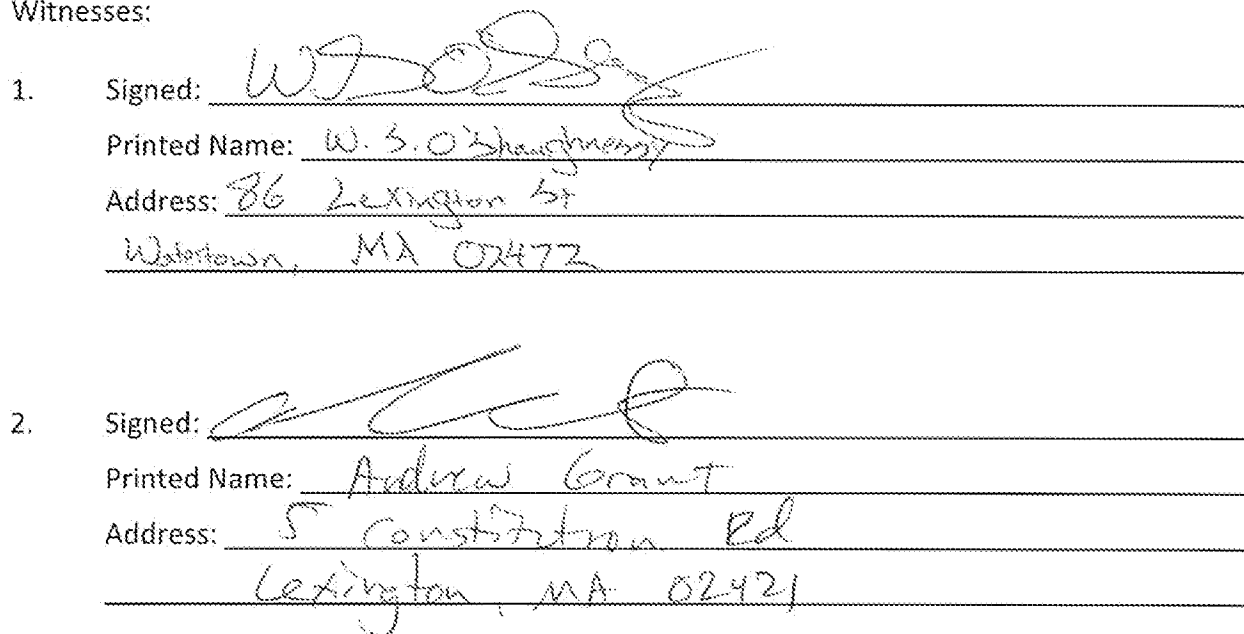 Witnesses:
1. Signed:
Printed Name: W. S. O'Shaughnessy
Address: 86 Lexington St
Watertown, MA 02472
2. Signed:
Printed Name: Andrew Grant
Address: 5 Constitution Rd
Lexington, MA 02421